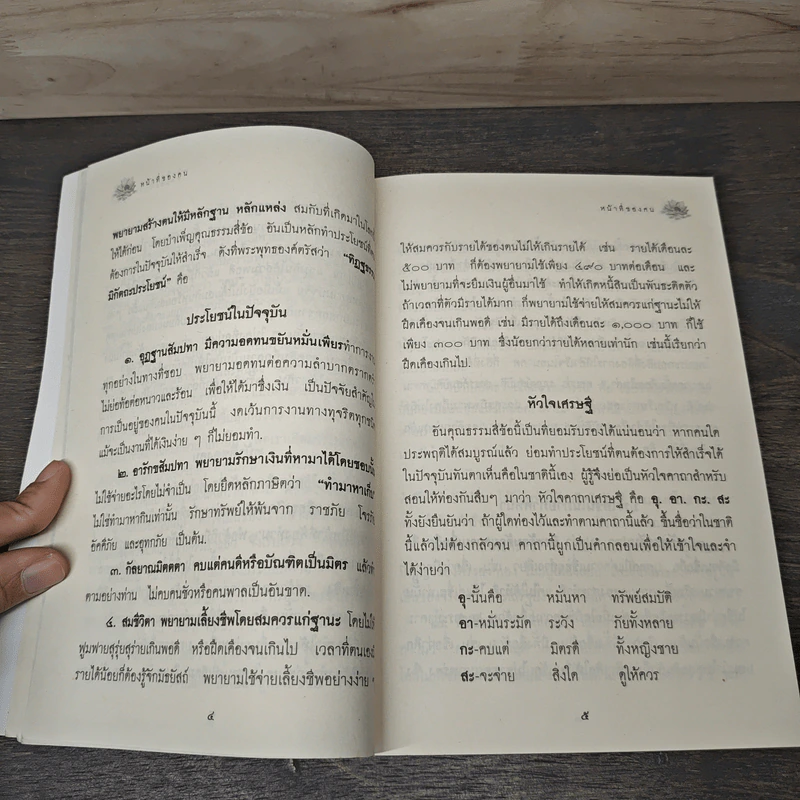 หน้าที่ของคน
พยายามสร้างตนให้มีหลักฐาน หลักแหล่ง สมกับที่เกิดมาในโลก
ให้ได้ก่อน โดยบำเพ็ญคุณธรรมสี่ข้อ อันเป็นหลักทำประโยชน์
ต้องการในปัจจุบันให้สำเร็จ ดังที่พระพุทธองค์ตรัสว่า
มิกัตถะประโยชน์" คือ
ประโยชน์ในปัจจุบัน
๑. อุฏฐานสัมปทา มีความอดทนขยันหมั่นเพียรทำการงาน
ทุกอย่างในทางที่ชอบ พยายามอดทนต่อความลำบากตรากตรำ
ไม่ย่อท้อต่อหนาวและร้อน เพื่อให้ได้มาซึ่งเงิน เป็นปัจจัยสำคัญ
การเป็นอยู่ของคนในปัจจุบันนี้ งดเว้นการงานทางทุจริตทุก
แม้จะเป็นงานที่ได้เงินง่าย ๆ ก็ไม่ยอมทำ.
๒. อารักขสัมปทา พยายามรักษาเงินที่หามาได้โดยชอบนั้น
ไม่ใช้จ่ายอะไรโดยไม่จำเป็น โดยยึดหลักภาษิตว่า "ทำมาหาเก็บ
ไม่ใช่ทำมาหากินเท่านั้น รักษาทรัพย์ให้พ้นจาก ราชภัย โจรภัย
อัคคีภัย และอุทกภัย เป็นต้น.
๓. กัลยาณมิตตตา คบแต่คนดีหรือบัณฑิตเป็นมิตร แล้วทำ
ตามอย่างท่าน ไม่คบคนชั่วหรือคนพาลเป็นอันขาด.
๔. สมชีวิตา พยายามเลี้ยงชีพโดยสมควรแก่ฐานะ โดยไม่
ฟูมฟายสุรุ่ยสุร่ายเกินพอดี หรือฝืดเคืองจนเกินไป เวลาที่ตนเอง
รายได้น้อยก็ต้องรู้จักมัธยัสถ์ พยายามใช้จ่ายเลี้ยงชีพอย่างง่าย ๆ
๔
หน้าที่ของคน
ให้สมควรกับรายได้ของตนไม่ให้เกินรายได้ เช่น รายได้เดือนละ
๕๐๐ บาท ก็ต้องพยายามใช้เพียง ๔๙๐ บาทต่อเดือน และ
ไม่พยายามที่จะยืมเงินผู้อื่นมาใช้ ทำให้เกิดหนี้สินเป็นพันธะติดตัว
ถ้าเวลาที่ตัวมีรายได้มาก ก็พยายามใช้จ่ายให้สมควรแก่ฐานะไม่ให้
ฝืดเคืองจนเกินพอดี เช่น มีรายได้ถึงเดือนละ ๑,๐๐๐ บาท ก็ใช้
เพียง ๓๐๐ บาท ซึ่งน้อยกว่ารายได้หลายเท่านัก เช่นนี้เรียกว่า
ฝืดเคืองเกินไป.
หัวใจเศรษฐี
อันคุณธรรมสี่ข้อนี้เป็นที่ยอมรับรองได้แน่นอนว่า หากคนใด
ประพฤติได้สมบูรณ์แล้ว ย่อมทำประโยชน์ที่ตนต้องการให้สำเร็จได้
ในปัจจุบันทันตาเห็นคือในชาตินี้เอง ผู้รู้จึงย่อเป็นหัวใจคาถาสำหรับ
สอนให้ท่องกันสืบๆ มาว่า หัวใจคาถาเศรษฐี คือ อุ. อา. กะ. สะ
ทั้งยังยืนยันว่า ถ้าผู้ใดท่องไว้และทำตามคาถานี้แล้ว ขึ้นชื่อว่าในชาติ
นี้แล้วไม่ต้องกลัวจน คาถานี้ผูกเป็นคำกลอนเพื่อให้เข้าใจและจำ
ได้ง่ายว่า
อุ-นั้นคือ หมั่นหา ทรัพย์สมบัติ
อา-หมั่นระมัด ระวัง ภัยทั้งหลาย
กะ-คบแต่ มิตรดี ทั้งหญิงชาย
สะ-จะจ่าย สิ่งใด ดูให้ควร
๕